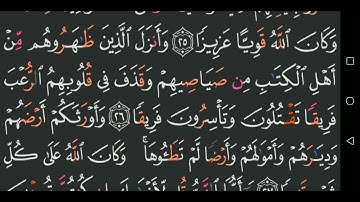 وَكَانَ اللَّهُ قَوِيًّا عَزِيزًا ﴿٢٥﴾ وَأَنزَلَ الَّذِينَ ظَٰهَرُوهُم مِّنْ
أَهْلِ الْكِتَٰبِ مِن صَيَاصِيهِمْ وَقَذَفَ فِي قُلُوبِهِمُ الرُّعْبَ
فَرِيقًا تَقْتُلُونَ وَتَأْسِرُونَ فَرِيقًا ﴿٢٦﴾ وَأَوْرَثَكُمْ أَرْضَهُمْ
وَدِيَٰرَهُمْ وَأَمْوَٰلَهُمْ وَأَرْضًا لَّمْ تَطَـُٔوهَا ۚ وَكَانَ اللَّهُ عَلَىٰ كُلِّ